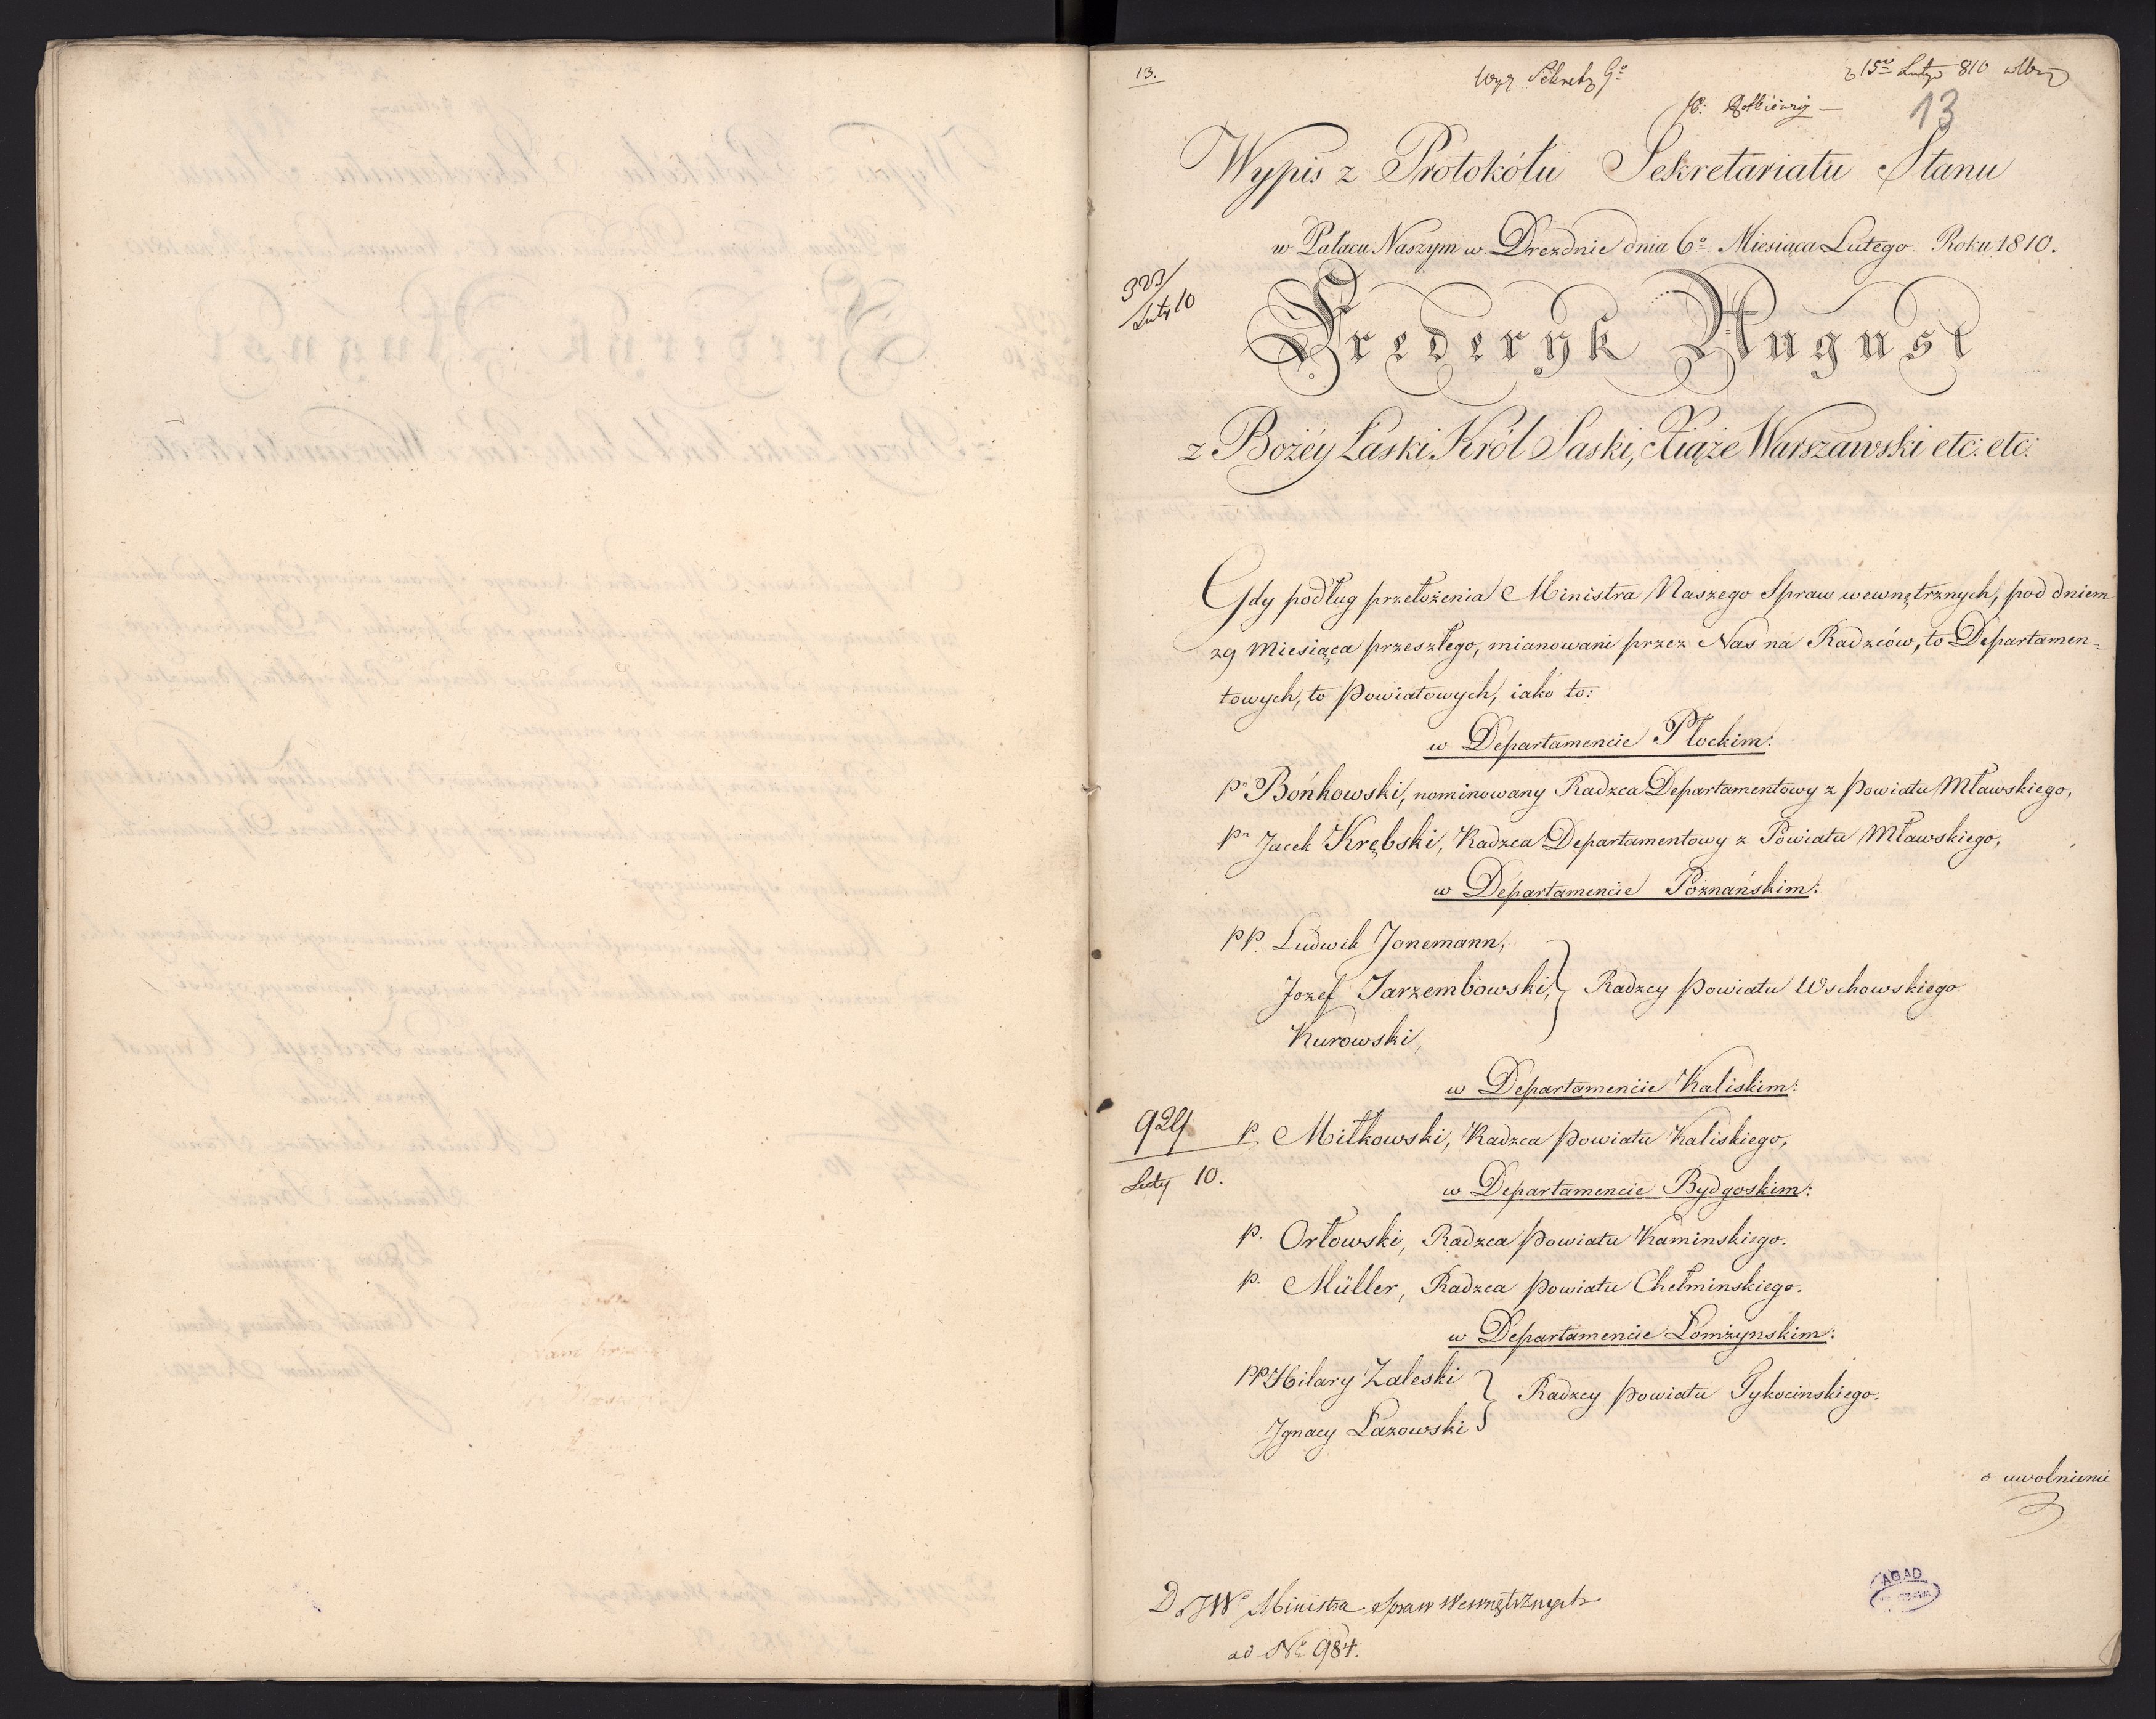 13.
z 15º Lutego 810
13
Wypis z Protokółu Sekretariatu Stanu
w Pałacu Naszym w Dreznie dnia 6º Miesiąca Lutego Roku 1810.
323/
Luty 10
Frederyk August
z Bożéy Łaski Król Saski, Xiąże Warszawski etc: etc:
Gdy podług przełożenia Ministra Naszego Spraw wewnętrznych, pod dniem
29 Miesiąca przeszłego, mianowani przez Nas na Radzców, to Departamen=
towych, to Powiatowych, iako to:
w Departamencie Płockim:
Pn Bońkowski, nominowany Radzca Departamentowy z Powiatu Mławskiego,
Pn Jacek Krębski, Radzca Departamentowy z Powiatu Mławskiego,
w Departamencie Poznańskim:
PP. Ludwik Jonemann,
Jozef Jarzembowski, } Radzcy Powiatu Wschowskiego
Kurowski,
w Departamencie Kaliskim:
924
P. Miłkowski, Radzca Powiatu Kaliskiego,
Luty 10.
w Departamencie Bydgoskim:
P. Orłowski, Radzca Powiatu Kaminskiego.
P. Müller, Radzca Powiatu Chełminskiego.
w Departamencie Łomżynskim:
PP. Hilary Zaleski } Radzcy Powiatu Tykocinskiego.
Ignacy Łazowski
o uwolnienie
D JWº Ministra Spraw Wewnętrznych
ad Nº 984.
AGAD